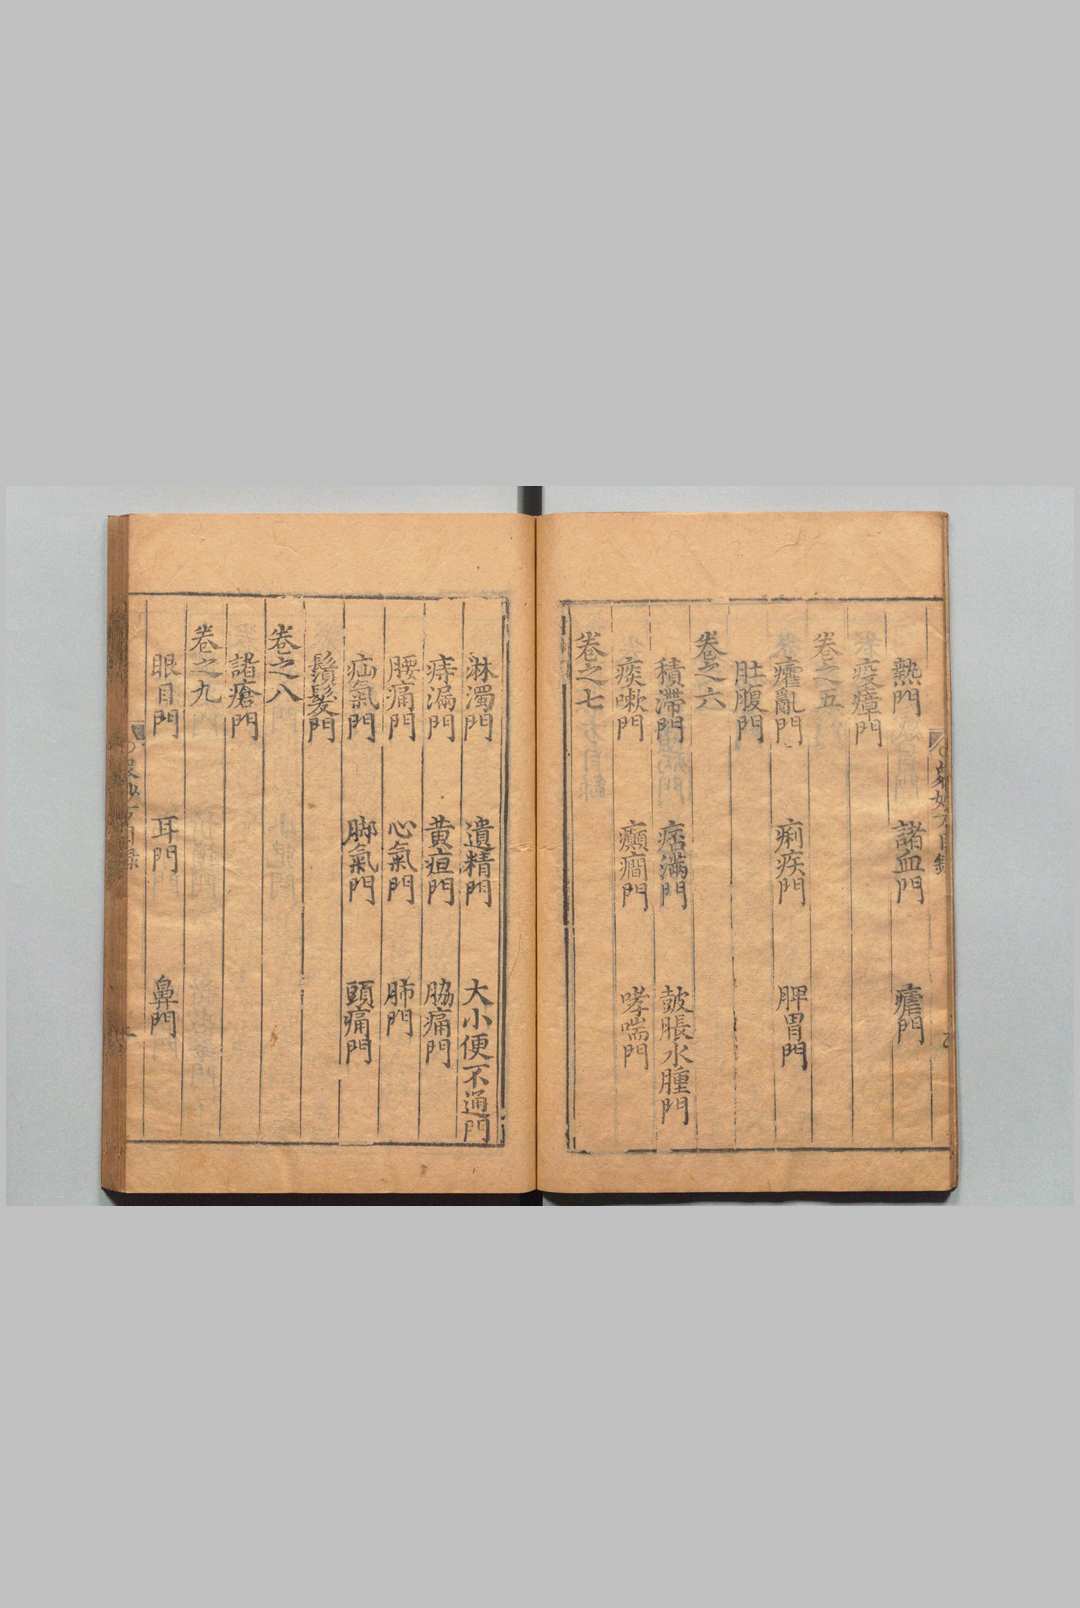 熱門 諸血門 瘧門
疫瘴門
卷之五
癨亂門 痢疾門 脾胃門
肚腹門
卷之六
積滯門 痞滿門 皷脹水腫門
痰嗽門 癲癇門 哮喘門
卷之七
淋濁門 遺精門 大小便不通門
痔漏門 黄疸門 脇痛門
腰痛門 心氣門 肺門
疝氣門 脚氣門 頭痛門
鬚髮門
卷之八
諸瘡門
卷之九
眼目門 耳門 鼻門